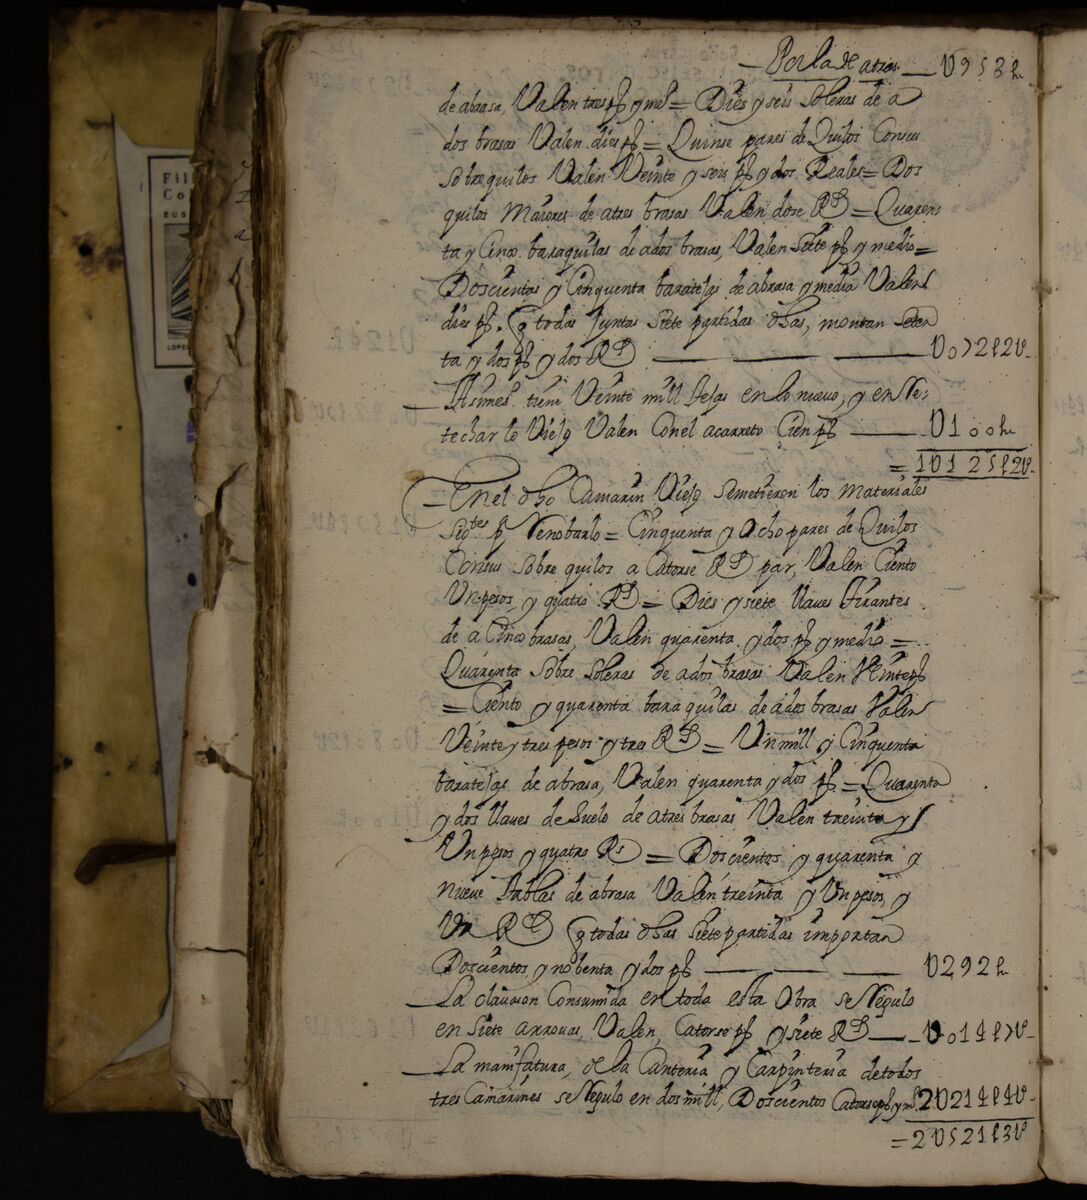 Por la de atras — U953 p
de abrasa, Valen tres ps y mo = Dies y seis Soleras de a
dos brasas Valen dies ps = Quinse pares de Quilos Con sus
Sobrequilos Valen Veinte y seis ps y dos Reales = Dos
quilos Maiores de atres brasas Valen dose Rs = Quaren
ta y Cinco baraquilas de ados brasas, Valen Siete ps y medio =
Doscientas y Cinquenta baratejas de abrasa y media Valen
dies ps. q todas Juntas Siete partidas dhas, montan Seten
ta y dos ps y dos Rs — U072p2r
Asimesmo tiene Veinte mill tejas en lo nuevo, y en Re
techar lo Viejo Valen Con el acarreto Cien ps — U100p
= 1U125p2r
En el dho Camarin Viejo Semetieron los Materiales
Sigtes pa Renobarlo = Cinquenta y Ocho pares de Quilos
Con sus Sobre quilos a Catorse Rs par, Valen Ciento
Un pesos, y quatro Rs = Dies y siete llaves tirantes
de a Cinco brasas, Valen quarenta y dos ps y medio =
Quarenta Sobre Soleras de ados brasas Valen Veinte ps
= Ciento y quarenta baraquilas de ados brasas Valen
Veinte y tres pesos y tres Rs = Un mill y Cinquenta
baratejas de abrasa, Valen quarenta y dos ps = Quarenta
y dos llaves de Suelo de atres brasas Valen treinta y
Un pesos y quatro Rs = Doscientos y quarenta y
nueve tablas de abrasa Valen treinta y Un pesos, y
Un Rl q todas dhas Siete partidas importan
Doscientos, y nobenta y dos ps — U292p
La clauason Consumida en toda esta Obra se Regulo
en Siete arrouas, Valen, Catorse ps y siete Rs — U014p7r
La manifatura, de la Canteria y Carpinteria de todos
tres Camarines se Regulo en dos mill, Doscientos Catorse ps y mo 2U214p4r
= 2U521p3r